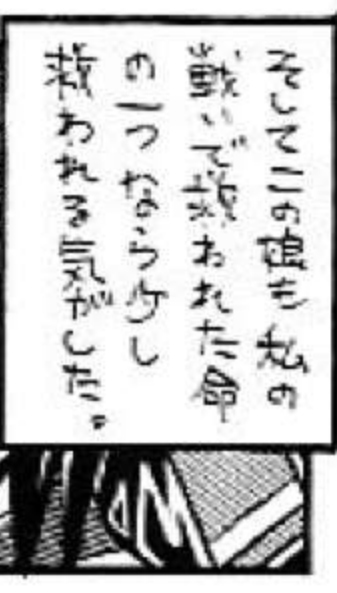 そしてこの娘も私の
戦いで救われた命
の一つなら少し
救われる気がした。